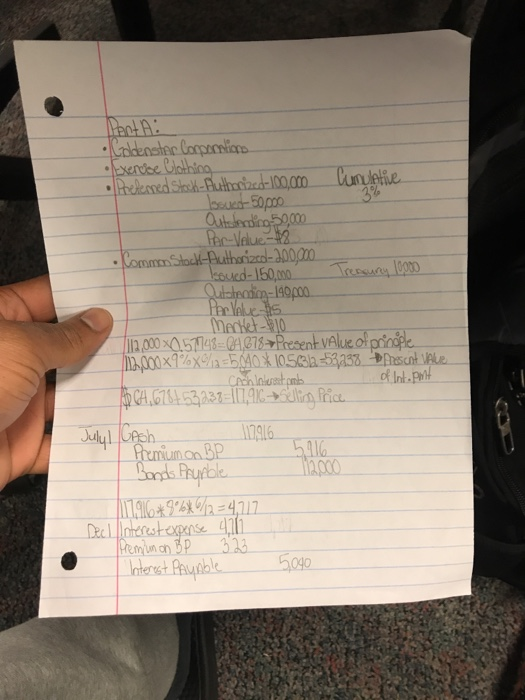 Part A:
• Goldenstar Corporations
• Exercise Clothing
• Preferred Stock-Authorized-100,000 Cumulative
Issued-50,000 3%
Outstanding-50,000
Par-Value-$8
• Common Stock-Authorized-200,000
Issued-150,000 Treasury 10,000
Outstanding-140,000
Par Value-$5
Market-$10
112,000 x 0.57748=64,678→Present value of principle
112,000 x 9% x 6/12=5,040 * 10.56312=53,238 → Present value
Cash interest pmts of Int. Pmt
$64,678+53,238=117,916→Selling Price
July 1 Cash 117,916
Premium on BP 5,916
Bonds Payable 112,000
117,916*8%*6/12=4,717
Dec 1 Interest expense 4717
Premium on BP 323
Interest Payable 5,040